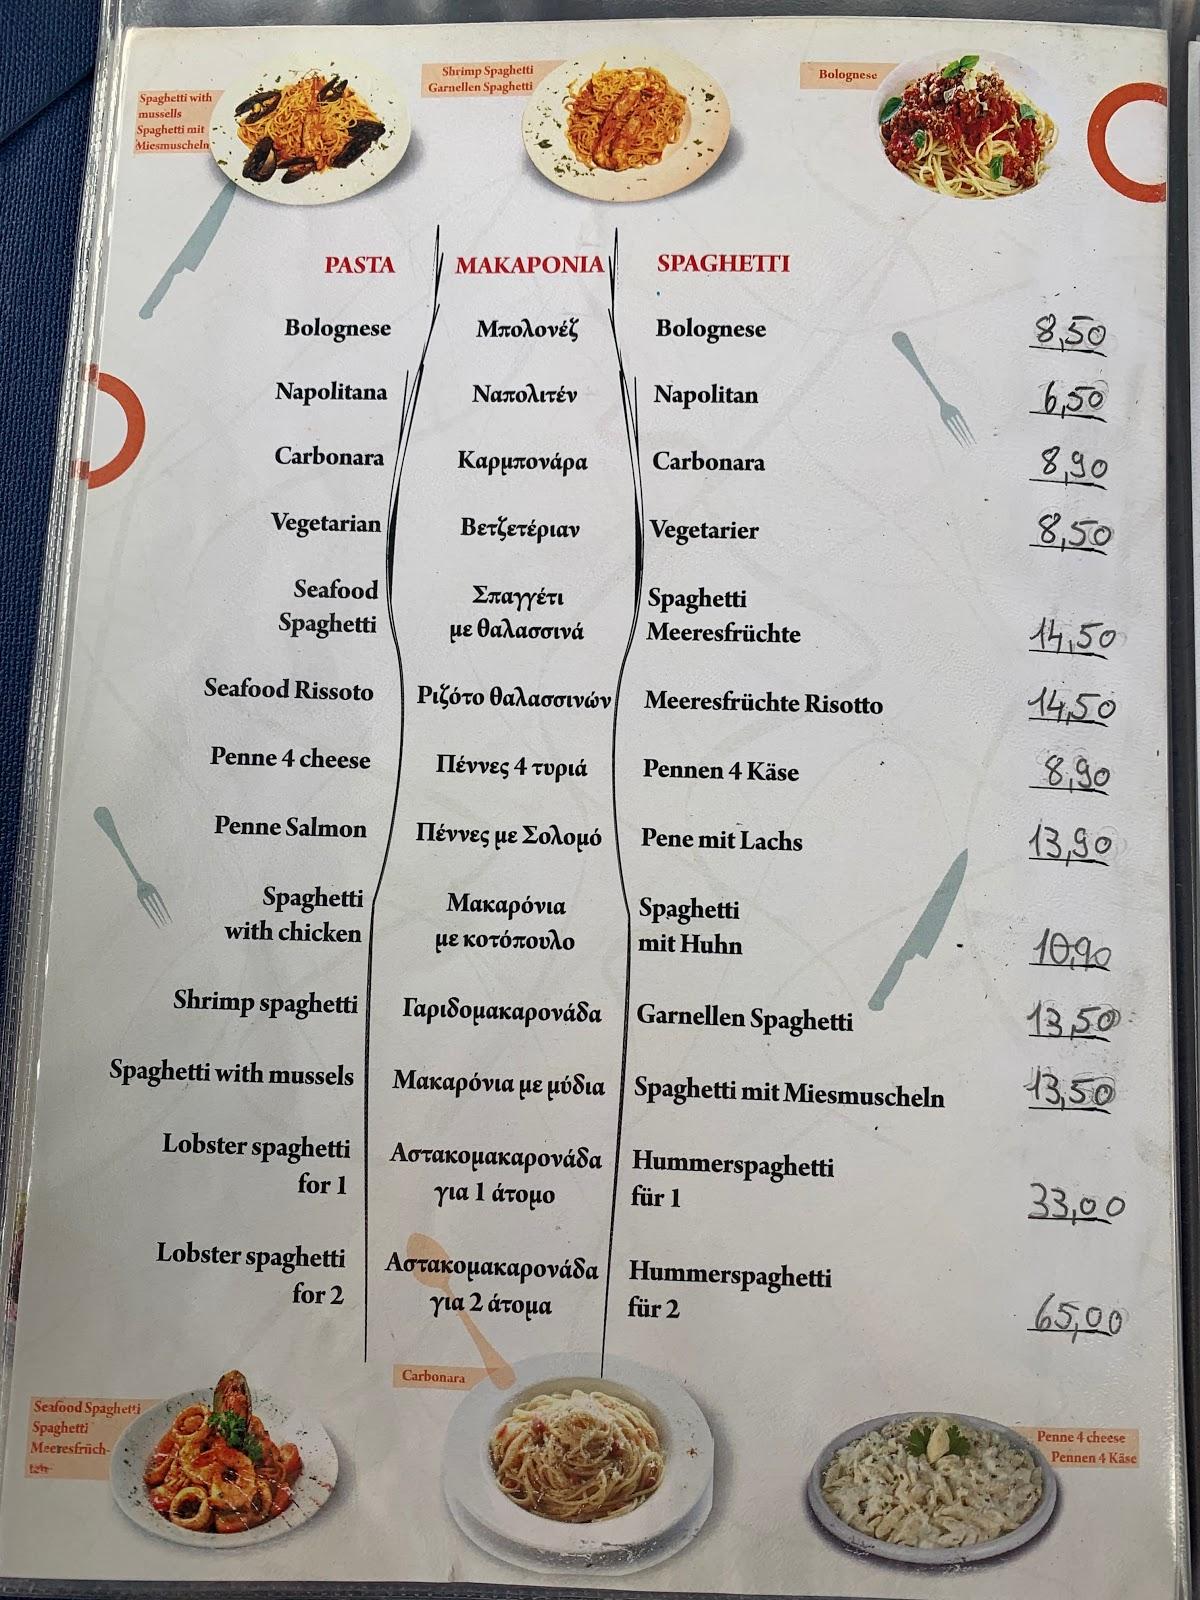 Spaghetti with
mussells
Spaghetti mit
Miesmuscheln
Shrimp Spaghetti
Garnellen Spaghetti
Bolognese
PASTA ΜΑΚΑΡΟΝΙΑ SPAGHETTI
Bolognese Μπολονέζ Bolognese 8,50
Napolitana Ναπολιτέν Napolitan 6,50
Carbonara Καρμπονάρα Carbonara 8,90
Vegetarian Βετζετέριαν Vegetarier 8,50
Seafood Σπαγγέτι Spaghetti
Spaghetti με θαλασσινά Meeresfrüchte 14,50
Seafood Rissoto Ριζότο θαλασσινών Meeresfrüchte Risotto 14,50
Penne 4 cheese Πέννες 4 τυριά Pennen 4 Käse 8,90
Penne Salmon Πέννες με Σολομό Pene mit Lachs 13,90
Spaghetti Μακαρόνια Spaghetti
with chicken με κοτόπουλο mit Huhn 10,90
Shrimp spaghetti Γαριδομακαρονάδα Garnellen Spaghetti 13,50
Spaghetti with mussels Μακαρόνια με μύδια Spaghetti mit Miesmuscheln 13,50
Lobster spaghetti Αστακομακαρονάδα Hummerspaghetti
for 1 για 1 άτομο für 1 33,00
Lobster spaghetti Αστακομακαρονάδα Hummerspaghetti
for 2 για 2 άτομα für 2 65,00
Seafood Spaghetti
Spaghetti
Meeresfrüch-
Carbonara
Penne 4 cheese
Pennen 4 Käse